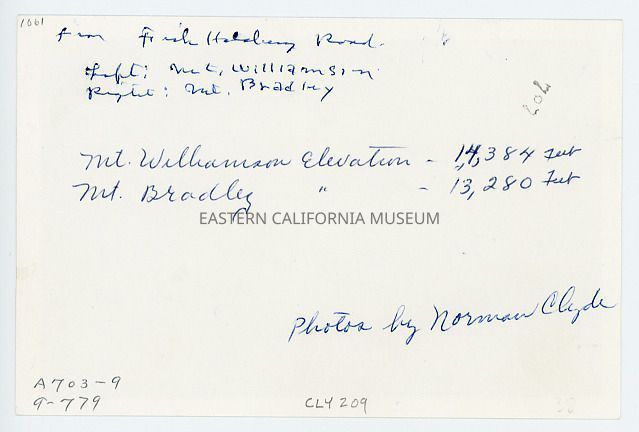 1061
from Fish Hatchery Road.
Left: Mt. Williamson
Right: Mt. Bradley
Mt. Williamson Elevation - 14,384 Feet
Mt. Bradley " - 13,280 Feet
EASTERN CALIFORNIA MUSEUM
Photos by Norman Clyde
A703-9
9-779
CLY 209